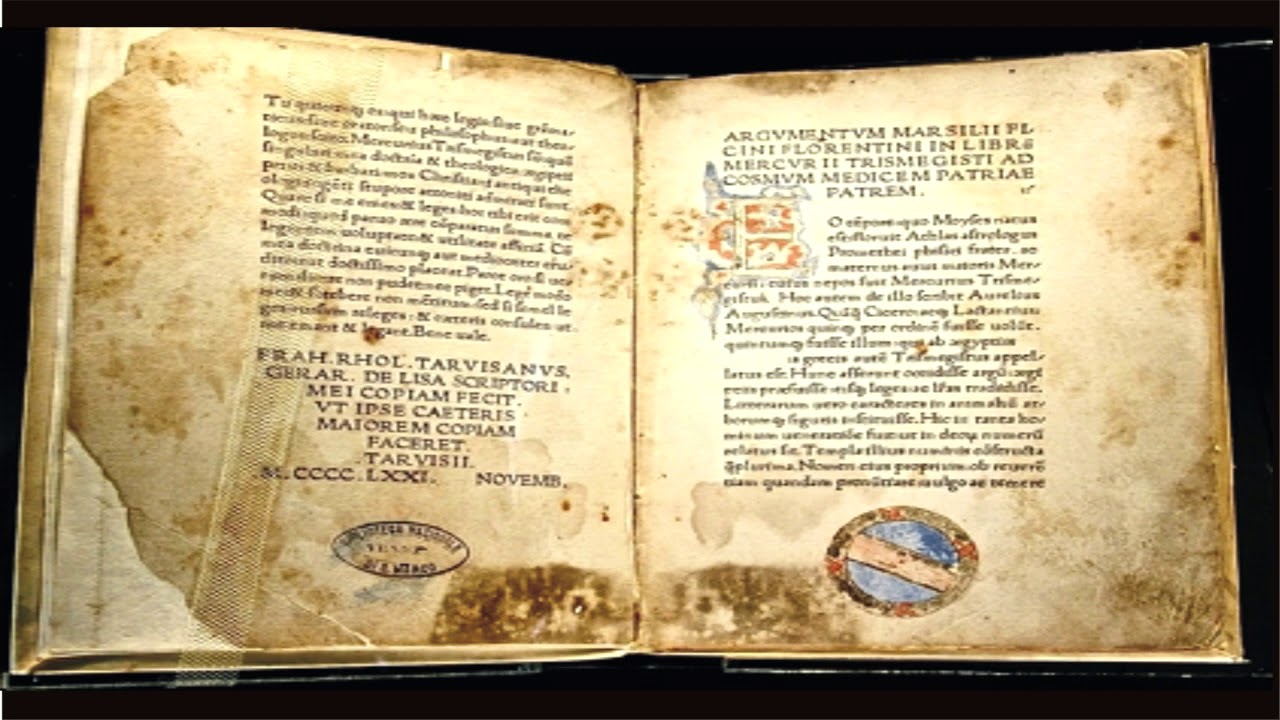 Tu quicunq es qui hæc legis siue grãma-
ticus siue orator seu philosophus aut theo-
logus scito. Mercurius Trismegistus sũ quẽ
singulari mea doctrina & theologica, ægyptii
prius & barbari mox Christiani antiqui
theologi ĩgẽti stupore attoniti admirati sunt.
Quare si me emes & leges hoc tibi erit com
modi quod paruo ære cõparatus summa te
legentem uoluptate & utilitate afficiã. Cũ
mea doctrina cuicunq aut mediocriter eru-
dito aut doctissimo placeat. Parce
non pudet nec piget. Lege modo
me & fatebere non mẽtitum sed si semel le
ges rursum releges & cæteris consules ut
me emant & legant. Bene uale.
FRAN. RHOL. TARVISANVS.
GERAR. DE LISA SCRIPTORI.
MEI COPIAM FECIT.
VT IPSE CAETERIS
MAIOREM COPIAM
FACERET.
TARVISII.
M.CCCC.LXXI. NOVEMB.
DI S MARCO
ARGVMENTVM MARSILII FI-
CINI FLORENTINI IN LIBRŨ
MERCVRII TRISMEGISTI AD
COSMVM MEDICEM PATRIAE
PATREM.
EO tẽpore quo Moyses natus
est floruit Athlas astrologus
Promethei phisici frater, ac
maternus auus maioris Mer-
curii cuius nepos fuit Mercurius Trisme-
gistus. Hoc autem de illo scribit Aurelius
Augustinus. Quãq Cicero atq Lactantius
Mercurios quinq per ordinẽ fuisse uolũt.
quintumq fuisse illum qui ab ægyptiis
is græcis autẽ Trismegistus appel-
latus est. Hunc asserunt occidisse argũ: ægi
ptiis præfuisse eisq leges ac lr̃as tradidisse.
Litterarum uero caracteres in animaliũ ar-
borumq figuris instituisse. Hic in tanta ho-
minum ueneratione fuit ut in deorũ numerũ
relatus sit. Templa illius numine cõstructa
q̃plurima. Nomen eius proprium ob reuerẽ
tiam quandam pronũtiare uulgo ac temere